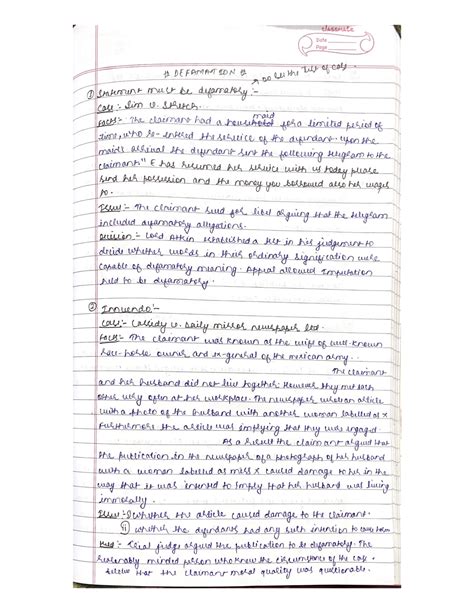 classmate
Date
Page
" DEFAMATION "
→ so be the Test of case.
① Statement must be defamatory:-
Case:- Sim v. Stretch.
Facts:- The claimant had a housemaid for a limited period of
time, who re-entered the service of the defendant. Upon the
maid's arrival the defendant sent the following telegram to the
claimant "E has resumed her service with us today please
send her possession and the money you borrowed also her wages
to.
Issue:- The claimant sued for libel arguing that the telegram
included defamatory allegations.
Decision:- Lord Atkin established a test in his judgement to
decide whether words in their ordinary signification were
capable of defamatory meaning. Appeal allowed Imputation
held to be defamatory.
② Innuendo:-
Case:- Cassidy v. Daily mirror newspaper ltd.
Facts:- The claimant was known as the wife of well-known
race-horse owner and ex-general of the mexican army.
The claimant
and her husband did not live together. However they met each
other very often at her workplace. The newspaper wrote an article
with a photo of the husband with another woman labelled as x
Furthermore the article was implying that they were engaged.
As a result the claimant argued that
the publication in the newspaper of a photograph of her husband
with a woman labelled as miss x caused damage to her in the
way that it was intended to imply that her husband was living
immorally.
Issue:- ① whether the article caused damage to the claimant.
② whether the defendants had any such intention to cause harm
Held:- Trial judge argued the publication to be defamatory. The
reasonably minded person who knew the circumstance of the case
believe that the claimant moral quality was questionable.